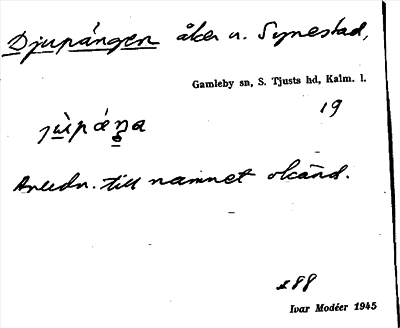 Djupången åker u. Synestad,
Gamleby sn, S. Tjusts hd, Kalm. l.
19
Anledn. till namnet okänd.
Ivar Modéer 1945